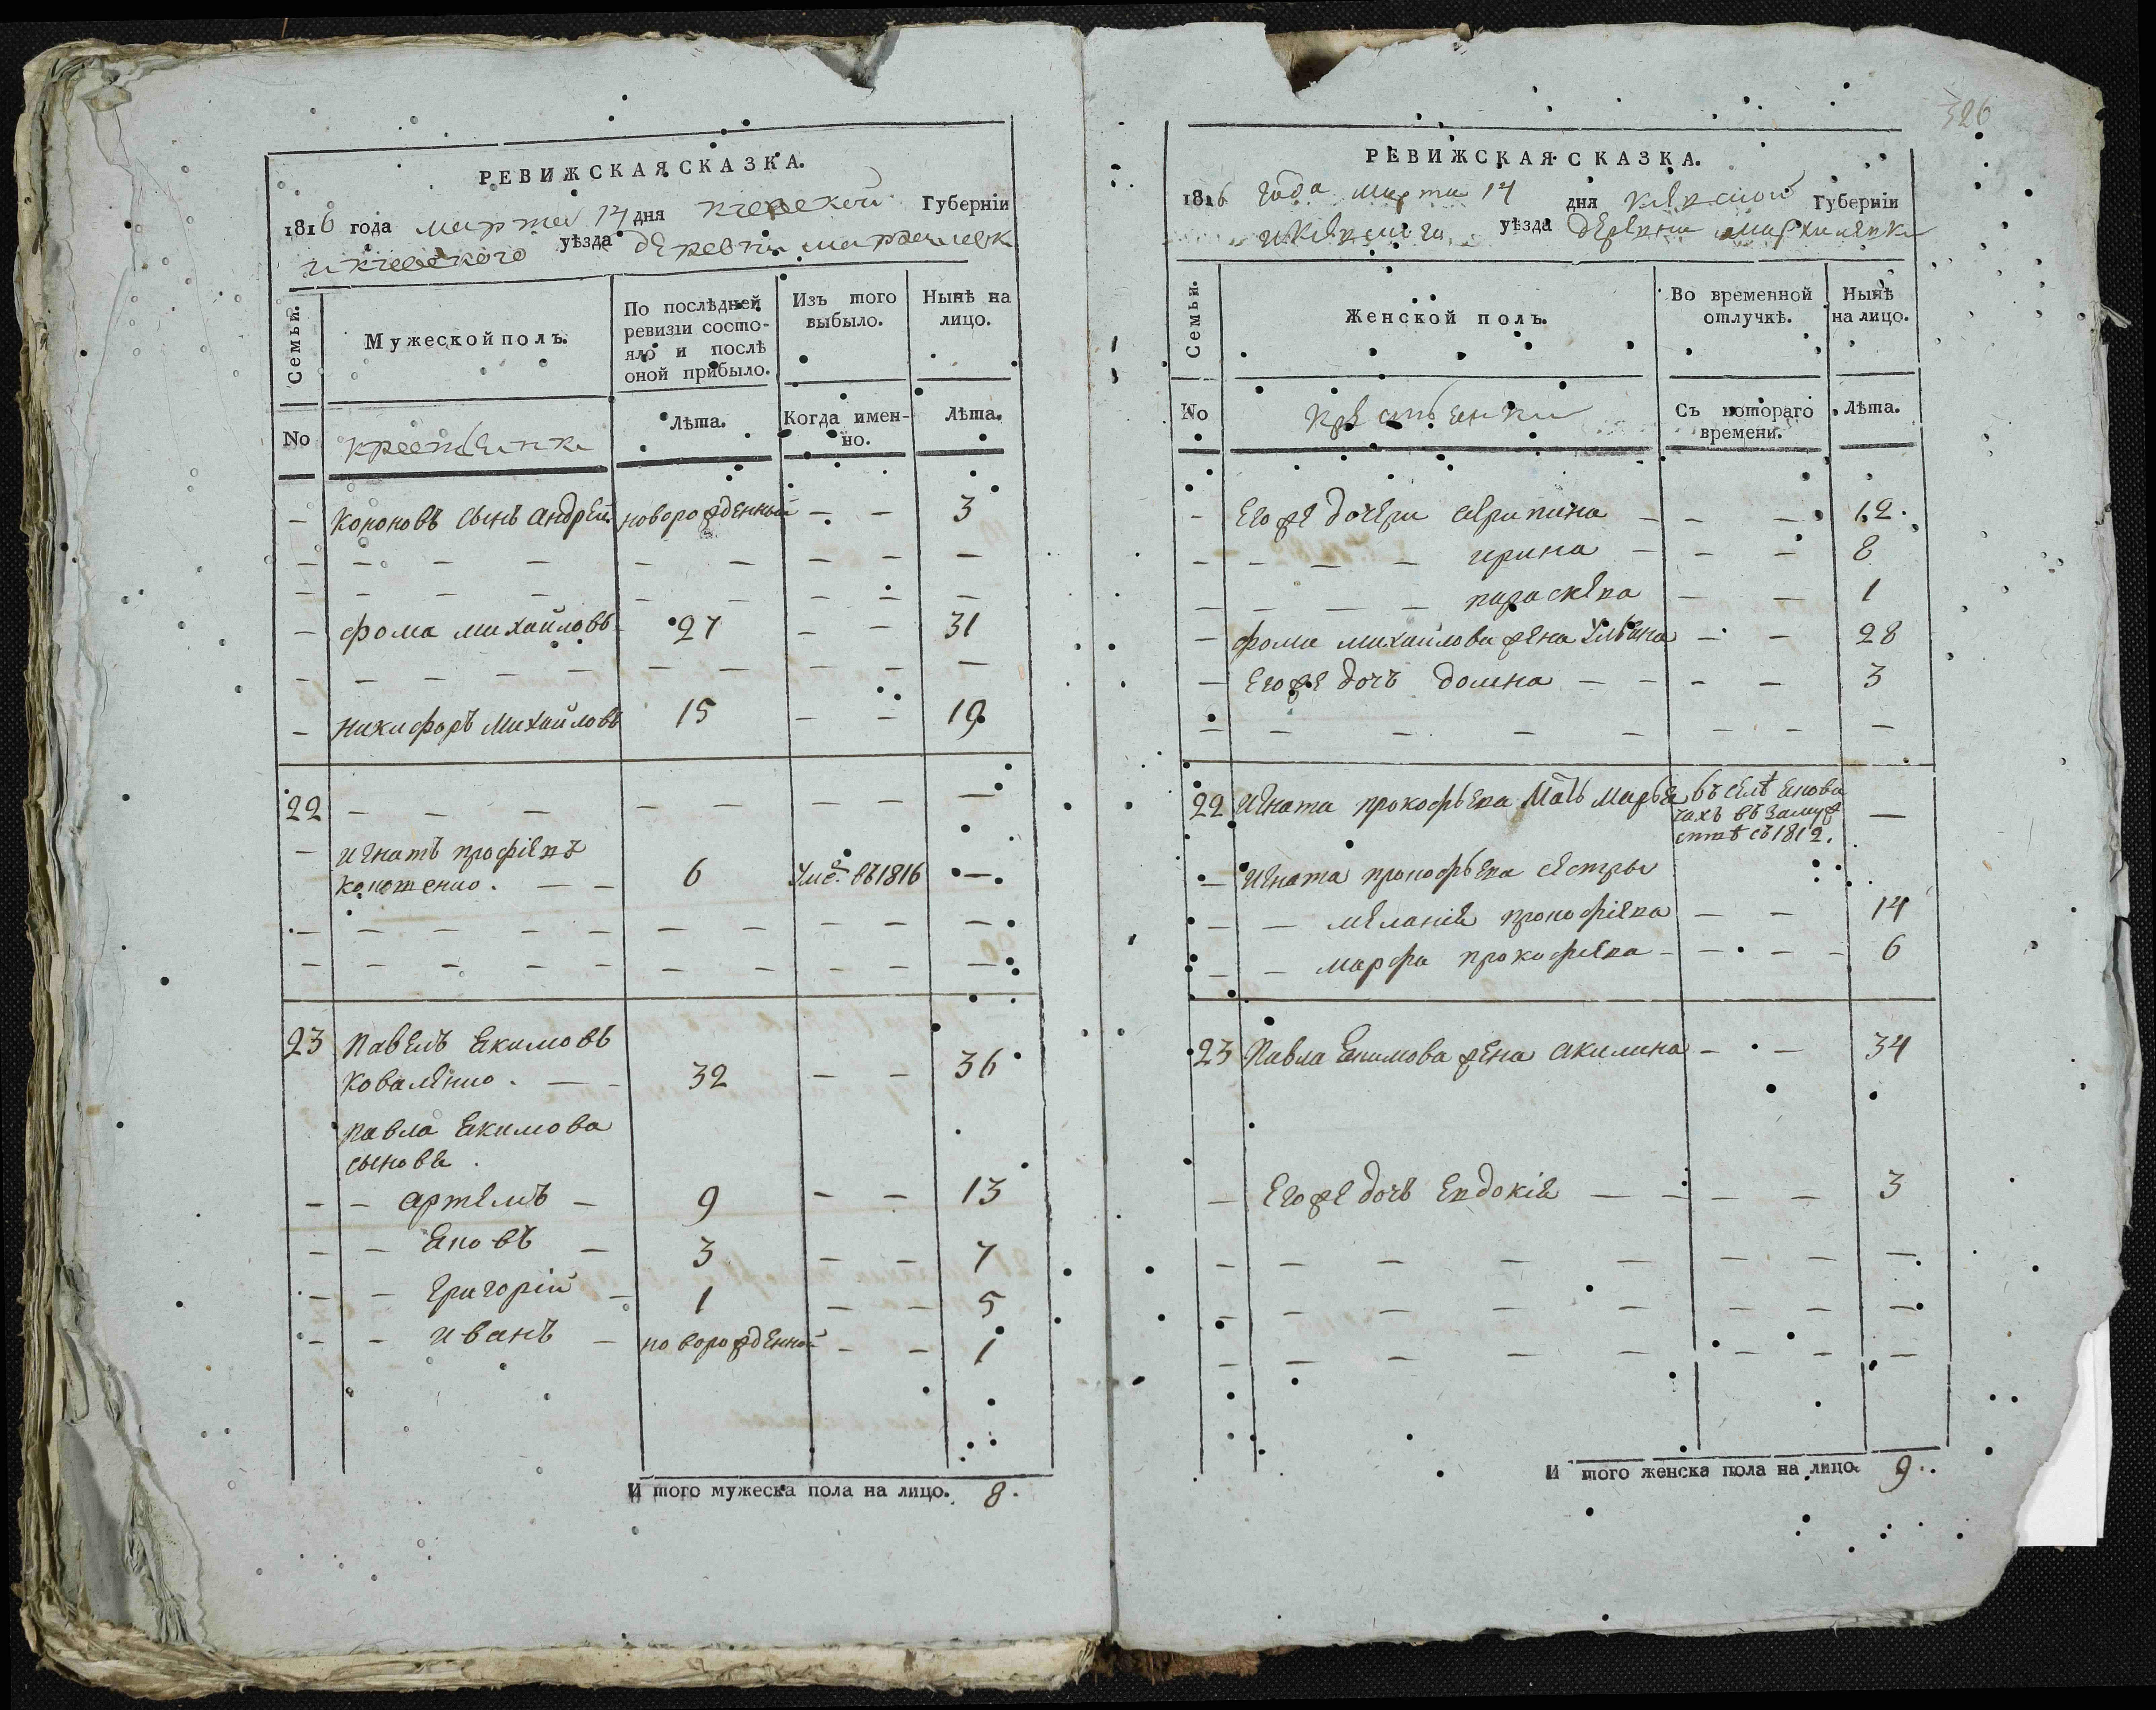 326
РЕВИЖСКАЯ СКАЗКА.
1816 года марта 14 дня киевской Губерніи
и киевского уѣзда деревни
Семьи.
Мужеской полъ.
По послѣдней
ревизіи состо-
яло и послѣ
оной прибыло.
Изъ того
выбыло.
Нынѣ на
лицо.
No
крестьянже
Лѣта.
Когда имен-
но.
Лѣта.
— Кононовъ сынъ андрей новорожденный — — 3
— — — — — — — — —
— — — — — — — — —
— фома михайловъ 27 — — 31
— — — — — — — — —
— никифоръ михайловъ 15 — — 19
22 — — — — — — — —
— игнатъ прокофіевъ
6 Уме. въ 1816 —
— — — — — — — — — —
— — — — — — — — — —
23 Павелъ Екимовъ
Коваленко. — — 32 — — 36
Павла Екимова
сыновья
— — артемъ — 9 — — 13
— — Яковъ — 3 — — 7
— — григорій — 1 — — 5
— — иванъ — новорожденной — — 1
И того мужеска пола на лицо. 8.
РЕВИЖСКАЯ СКАЗКА.
1816 года марта 14 дня киевской Губерніи
и киевского уѣзда деревни
Семьи.
Женской полъ.
Во временной
отлучкѣ.
Нынѣ
на лицо.
No
Крестьянки
Съ котораго
времени.
Лѣта.
— Егоже дочери агрипина — — — 12.
— — — — ирина — — — 8
— — — — параскева — — 1
— фомы михайлова жена Ульяна — — 28
— Егоже дочь домна — — — — 3
— — — — — — — —
22 игната прокофьева мать марья въ селѣ
въ замуж
съ 1812. —
— игната прокофьева сестры
— — меланія прокофіева — — 14
— — марфа прокофиева — — — — 6
23 Павла Екимова жена акилина — — 34
— Егоже дочь Евдокія — — — — 3
— — — — — — — — —
— — — — — — — — —
— — — — — — — — —
И того женска пола на лицо. 9.